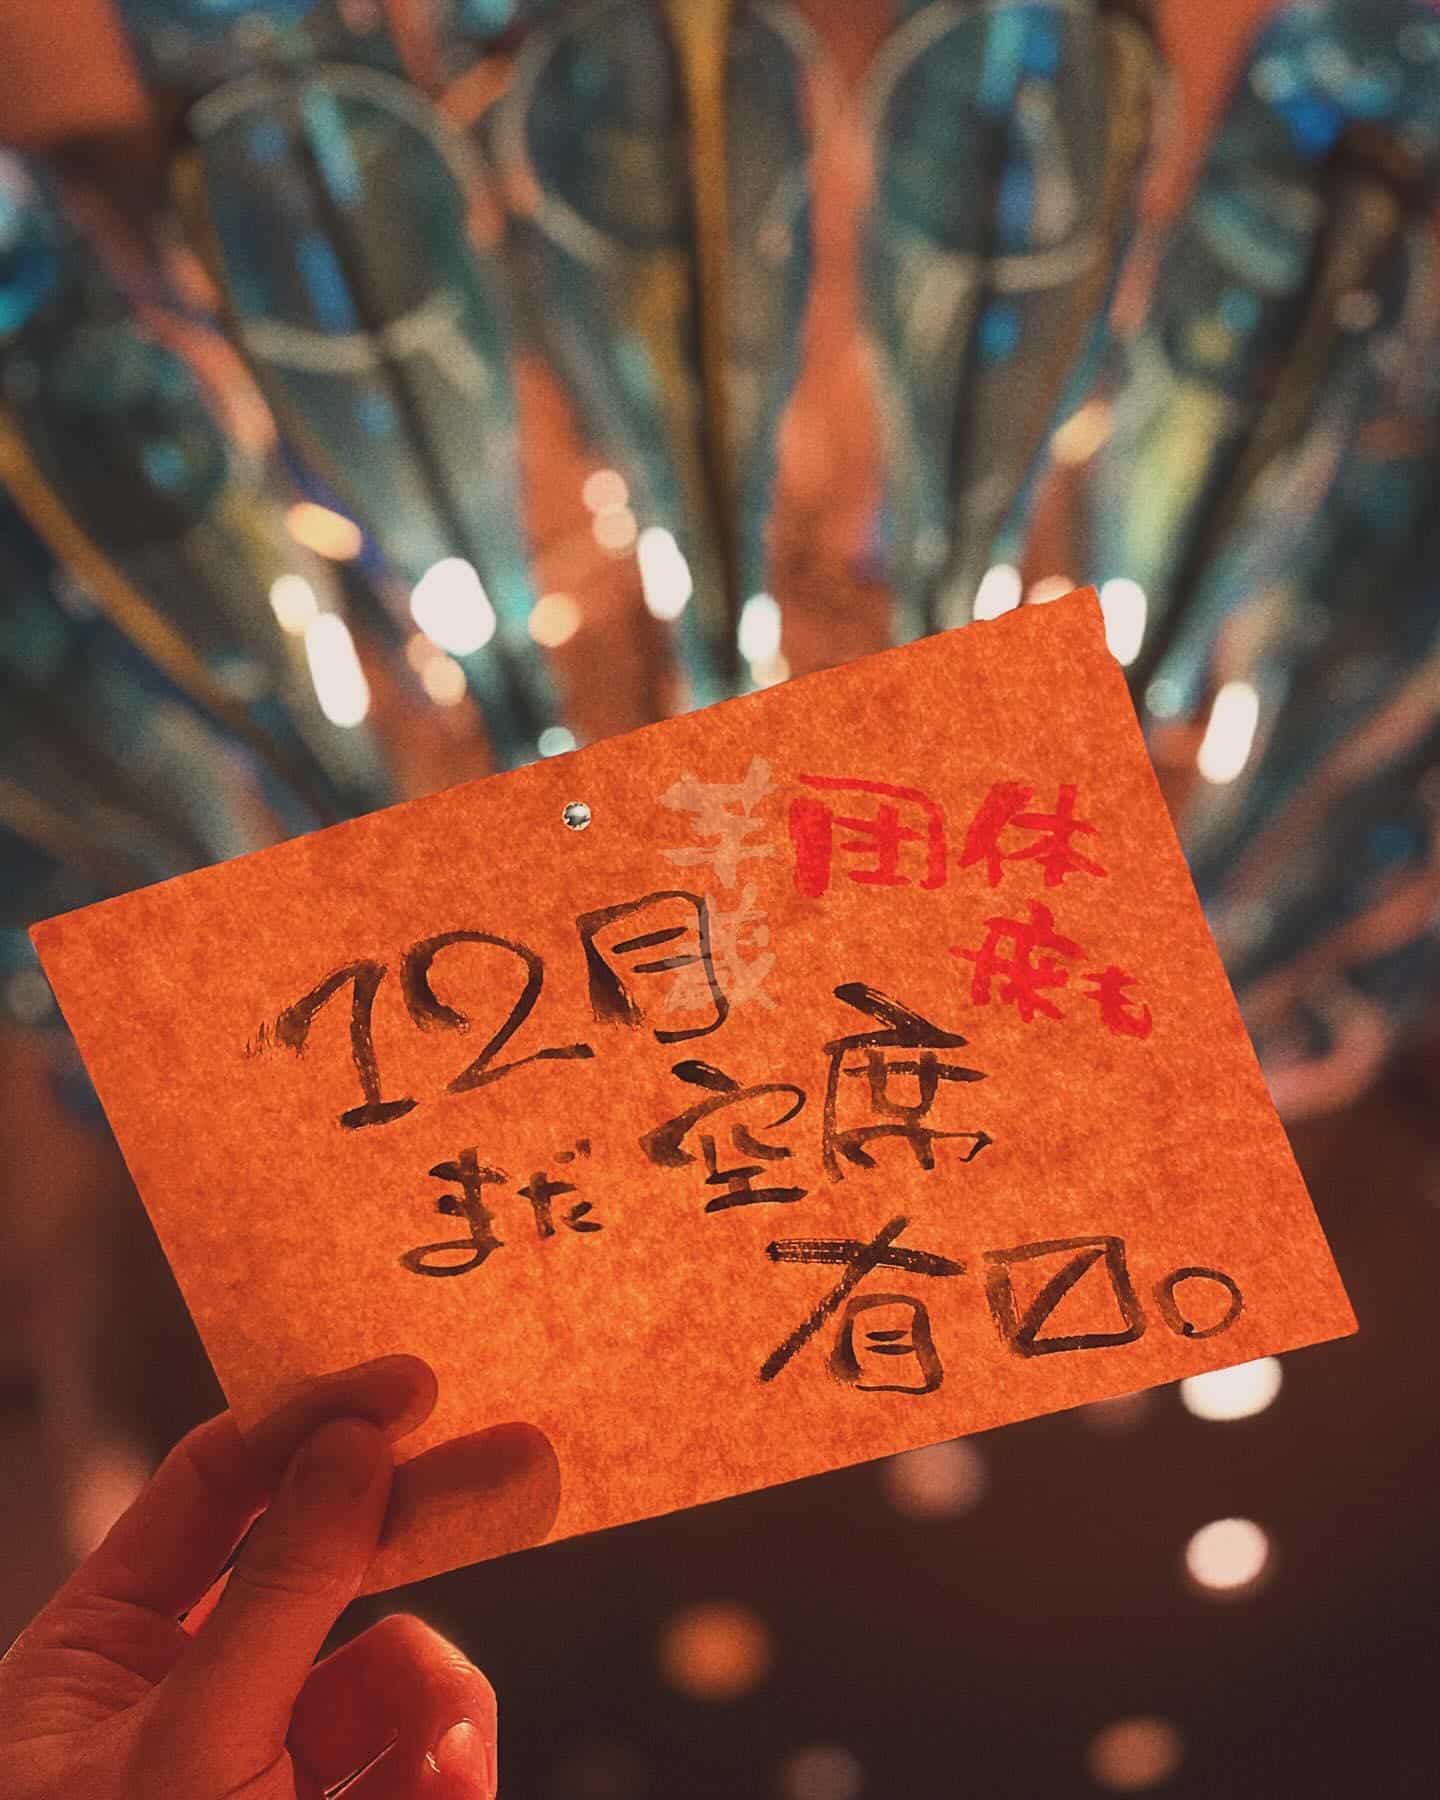 芋蔵
団体
席も
12月
まだ空席
有〼。